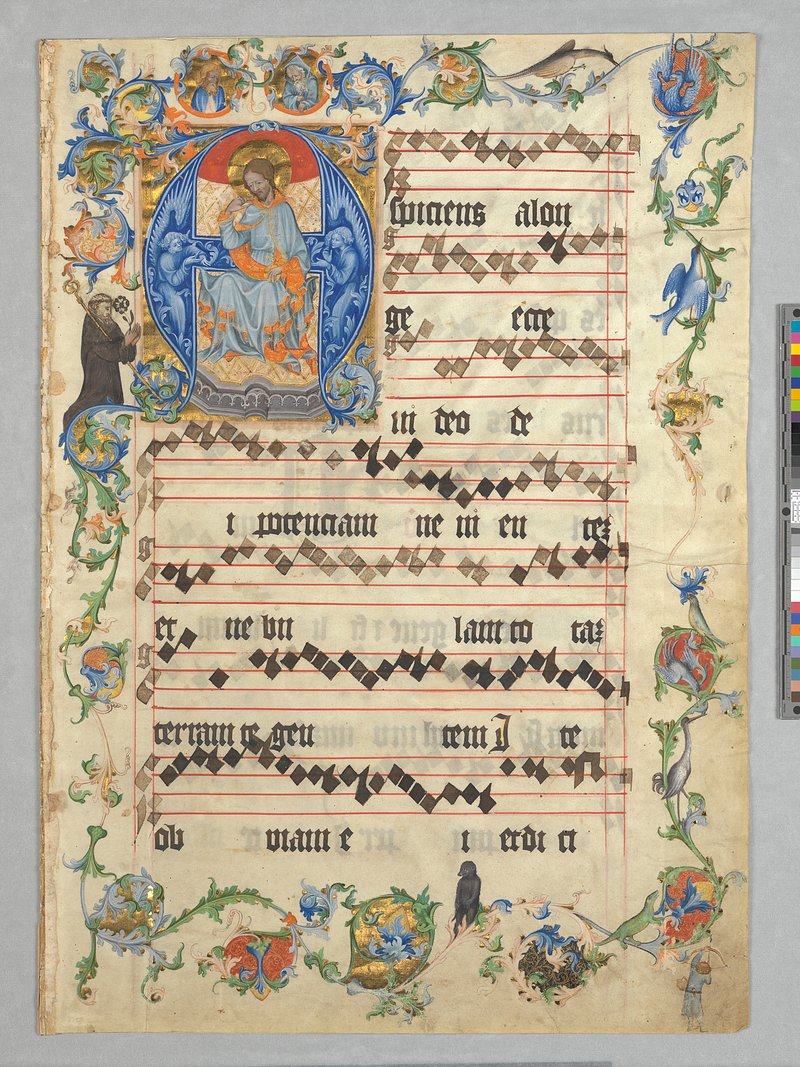 Aspiciens alon
ge ecce
in deo de
i potenciam ne in en tez
et ne bu lam to taz
terram te gen tem I te
ob uiam e i et di ci